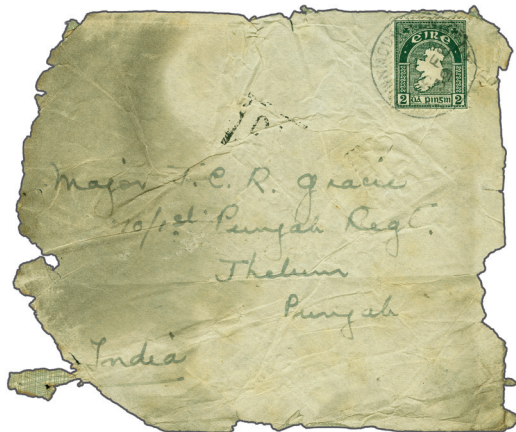 ÉIRE
2 Dá pingin 2
Major J. C. R. Gracie
10/1st Punjab Regt.
Jhelum
Punjab
India